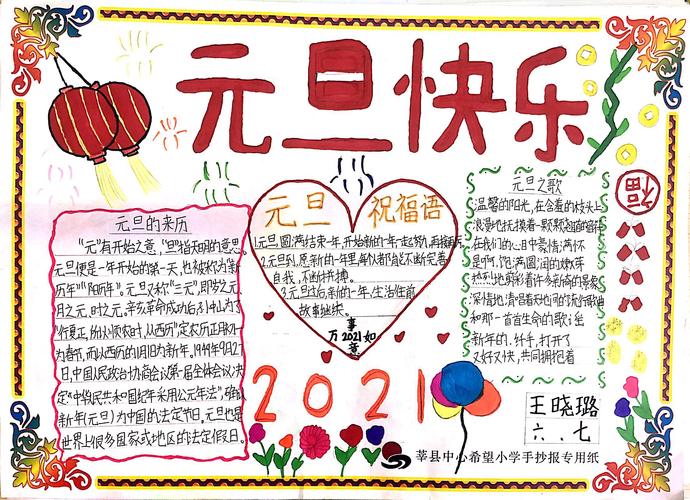 元旦快乐
元旦的来历
"元"有开始之意，"旦"指天明的意思。
元旦便是一年开始的第一天，也被称为"新
历年""阳历年"。元旦又称"三元"，即岁之元
月之元，时之元。辛亥革命成功后，孙中山为了
"行夏正，所以顺农时，从西历"定农历正月初一
为春节，而以西历的1月1日为新年。1949年9月27
日，中国人民政治协商会议第一届全体会议，决
定"中华人民共和国纪年采用公元年法"，确认
新年（元旦）为中国的法定节日。元旦也是
世界上很多国家或地区的法定假日。
元旦 祝福语
1.元旦，圆满结束一年，开始新的一年一起努力，再接再厉。
2.元旦到，愿新的一年里，每人都自己不断完善
自我，不断拼搏。
3.元旦过后，新的一年，生活往前
故事继续。
事
万2021如
意
元旦之歌
温馨的阳光，在含羞的枝头上
浪漫地抚摸着
在我们的心目中豪情满怀
是啊，饱满圆润的嫩芽
热烈地剪彩着许多新奇的景象
深情地清唱着天地间的流行歌曲
和那一首首生命的歌谣
新年的
打开了
又好又快，共同拥抱着
福
2021
王晓璐
六、七
莘县中心希望小学手抄报专用纸